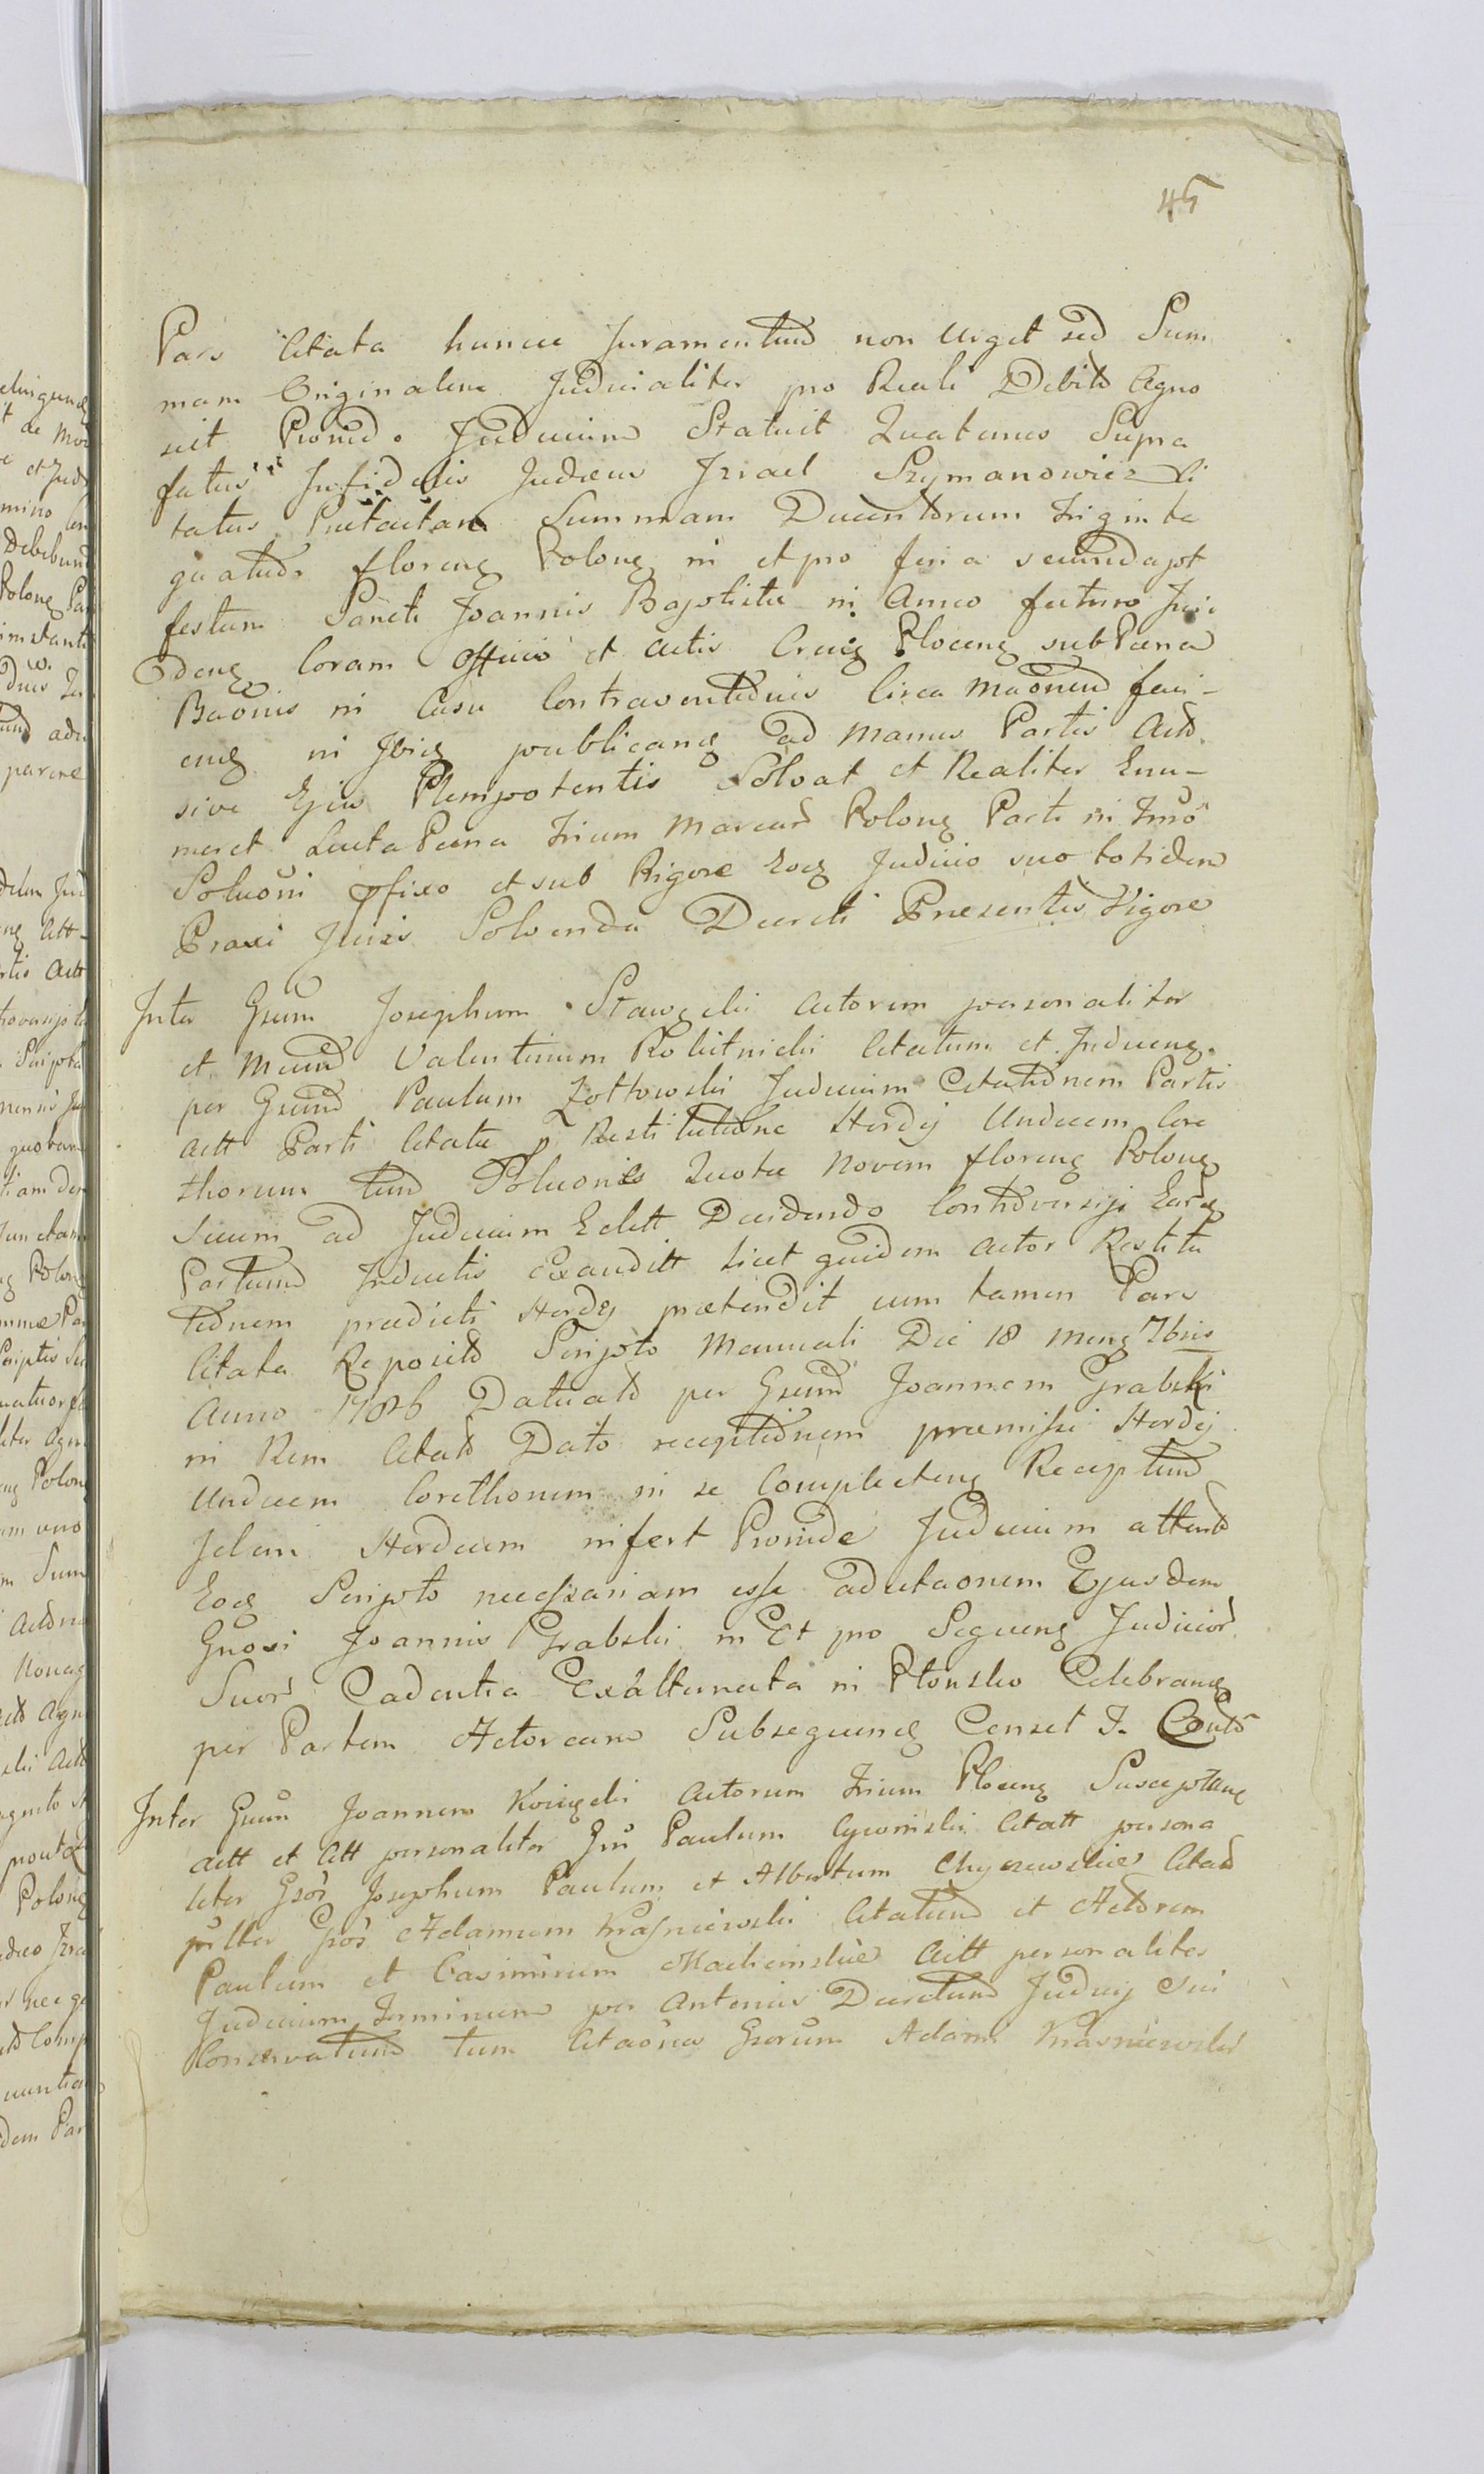 45
Pars Citata hunce Juramentum non urget sed Sum
mam Originalem Judicialiter pro Reali Debito Agno
scit Proinde Judicium Statuit Quatenus Supra
fatus Infidelis Judaeus Izrael Szymanowicz Ci
tatus Pretactam Summam Ducentorum Triginta
quatuor floreng Polong in et pro feria secunda post
festum Sancti Joannis Baptistae in Anno futuro Inci
deng Coram Officio et Actis Ploceng sub Paena
Baonis in Casu Contraventionis Circa maonem faci-
eng in Jbig publicang ad manus Partis Acto
sive Ejus Plenipotentis Solvat et Realiter Enu-
meret Lucta Paena Trium Marcar Polong Parti in Tmo
Soluoni pfixo et sub Rigore Eoq Judicio suo totidem
Praxi Juris Solvenda Decreti Praesentis Vigore
Inter Gsum Josephum Actorem personaliter
et Valentinum Robutnicki Citatum et Induceng
per Gsum Paulum Zottowski Judicium Citationem Partis
Actt Parti Citatae p Restitutione Hordej Undecem Core
thorum tum Soluonis Quotae Novem floreng Polong
Suum ad Judicium Edett Decidendo Controversijs Eard
Partium Inductis Exauditt licet quidem Actor Restitu
tionem praedicti Hordej praetendit cum tamen Pars
Citata Reposito Scripto Manuali Die 18 Meng 7bris
Anno 1786 Datuato per Gsum Joannem Grabski
in Rem Citato Dato receptionem praemissi Hordej
Undecem Corethorum in se Complecteng Receptum
Hordeum infert Proinde Judicium attento
Eoq Scripto necessariam esse adcitaonem Ejusdem
Gnosi Joannis Grabski in Et pro Sequeng Judicior
Suor Cadentia Exalternata in Plonsko Celebrang
per Partem Actoream Subsequeng Censet J.
Inter Gsum Joannem Actorum Trium Ploceng Susceptang
Actt et Citt personaliter Gsu Paulum Citatt persona
liter Gsos Josephum Paulum et Albertum Citat
Gsos Adamum Krasniewski Citatum et Actorem
Paulum et Casimirum Actt personaliter
Judicium Terminum per Antenius Decretum Judicij Sui
Conservatum tum Citaones Gsorum Adami Krasniewski